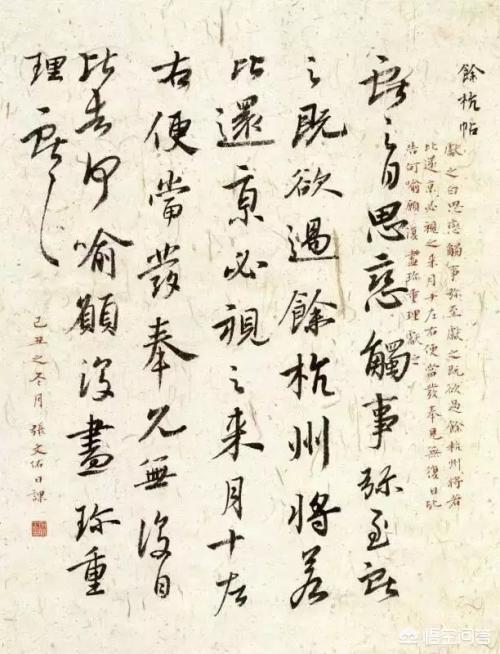 餘杭帖
獻之白思戀觸事弥至獻之既欲過餘杭州將若
比還京必視之来月十左右便當發奉見無復日比
告何喻願復盡珍重理獻之
獻之白思戀觸事弥至獻
之既欲過餘杭州將若
比還京必視之来月十左
右便當發奉見無復日
比告何喻願復盡珍重
理獻之
己丑之冬月張文佑日課
悟空问答